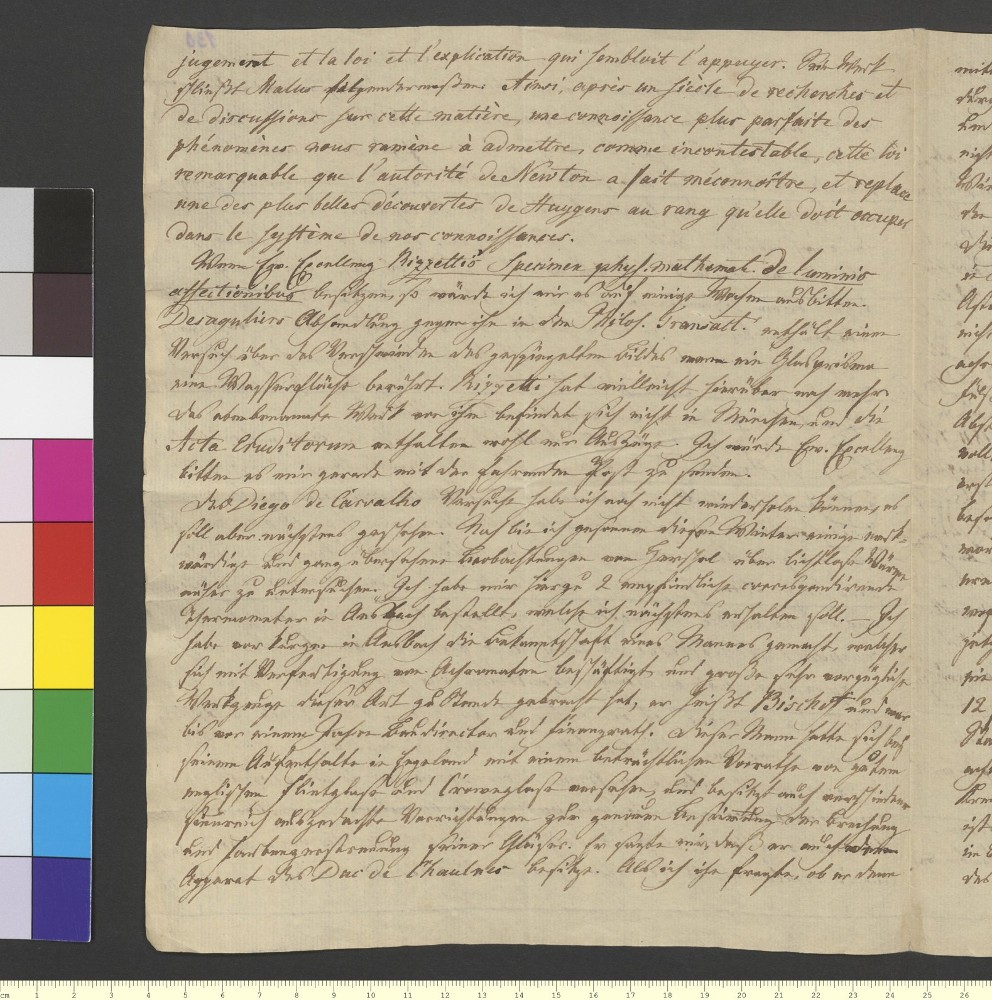 jugement et la loi et l'explication qui sembloit l'appuyer. Sein Werk
schließt Malus folgendermaßen Ainsi, après un siècle de recherches et
de discussions sur cette matière, une connoissance plus parfaite des
phénomènes nous ramène à admettre, comme incontestable, cette loi
remarquable que l'autorité de Newton a fait méconnoître, et replace
une des plus belles découvertes de Huygens au rang qu'elle doit occuper
dans le système de nos connoissances.
Wenn Ew. Excellenz Rizzettis Specimen phys. mathemat. De luminis
affectionibus besitzen, so würde ich mir es auf einige Wochen ausbitten.
Desaguliers Abhandlung gegen ihn in den Philos. Transatt. enthält einen
Versuch über das Verschwinden des gespiegelten Bildes wenn ein Glasprisma
eine Wasserfläche berührt. Rizzetti hat vielleicht hierüber noch mehr.
Das obenbenannte Werk von ihm befindet sich nicht in München, und die
Acta Eruditorum enthalten wohl nur Auszüge. Ich würde Ew. Excellenz
bitten es mir gerade mit der fahrenden Post zu senden.
Des Diego de Carvalho Versuche habe ich noch nicht wiederholen können, es
soll aber nächstens geschehen. Auch bin ich gesonnen diesen Winter einige merk-
würdige und ganz übersehene Beobachtungen von Herschel über lichtlose Wärme
näher zu untersuchen. Ich habe mir hierzu 2 empfindliche correspondirende
Thermometer in Ansbach bestellt, welche ich nächstens erhalten soll. — Ich
habe vor kurzem in Ansbach die Bekanntschaft eines Mannes gemacht, welcher
sich mit Verfertigung von Achromaten beschäftigt und große sehr vorzügliche
Werkzeuge dieser Art zu Stande gebracht hat, er heißt Bischof und war
bis vor einem Jahre Baudirector und Finanzrath. Dieser Mann hatte sich bey
seinem Aufenthalte in Engeland mit einem beträchtlichen Vorrathe von gutem
englischen Flintglase und Crownglase versehen, und besitzt auch verschiedene
sinnreich ausgedachte Vorrichtungen zur genauen Bestimmung der Brechung
und Farbenzerstreuung seiner Gläser. Er sagte mir, daß er auch den
Apparat des Duc de Chaulnes besitze. Als ich ihn fragte, ob er denn